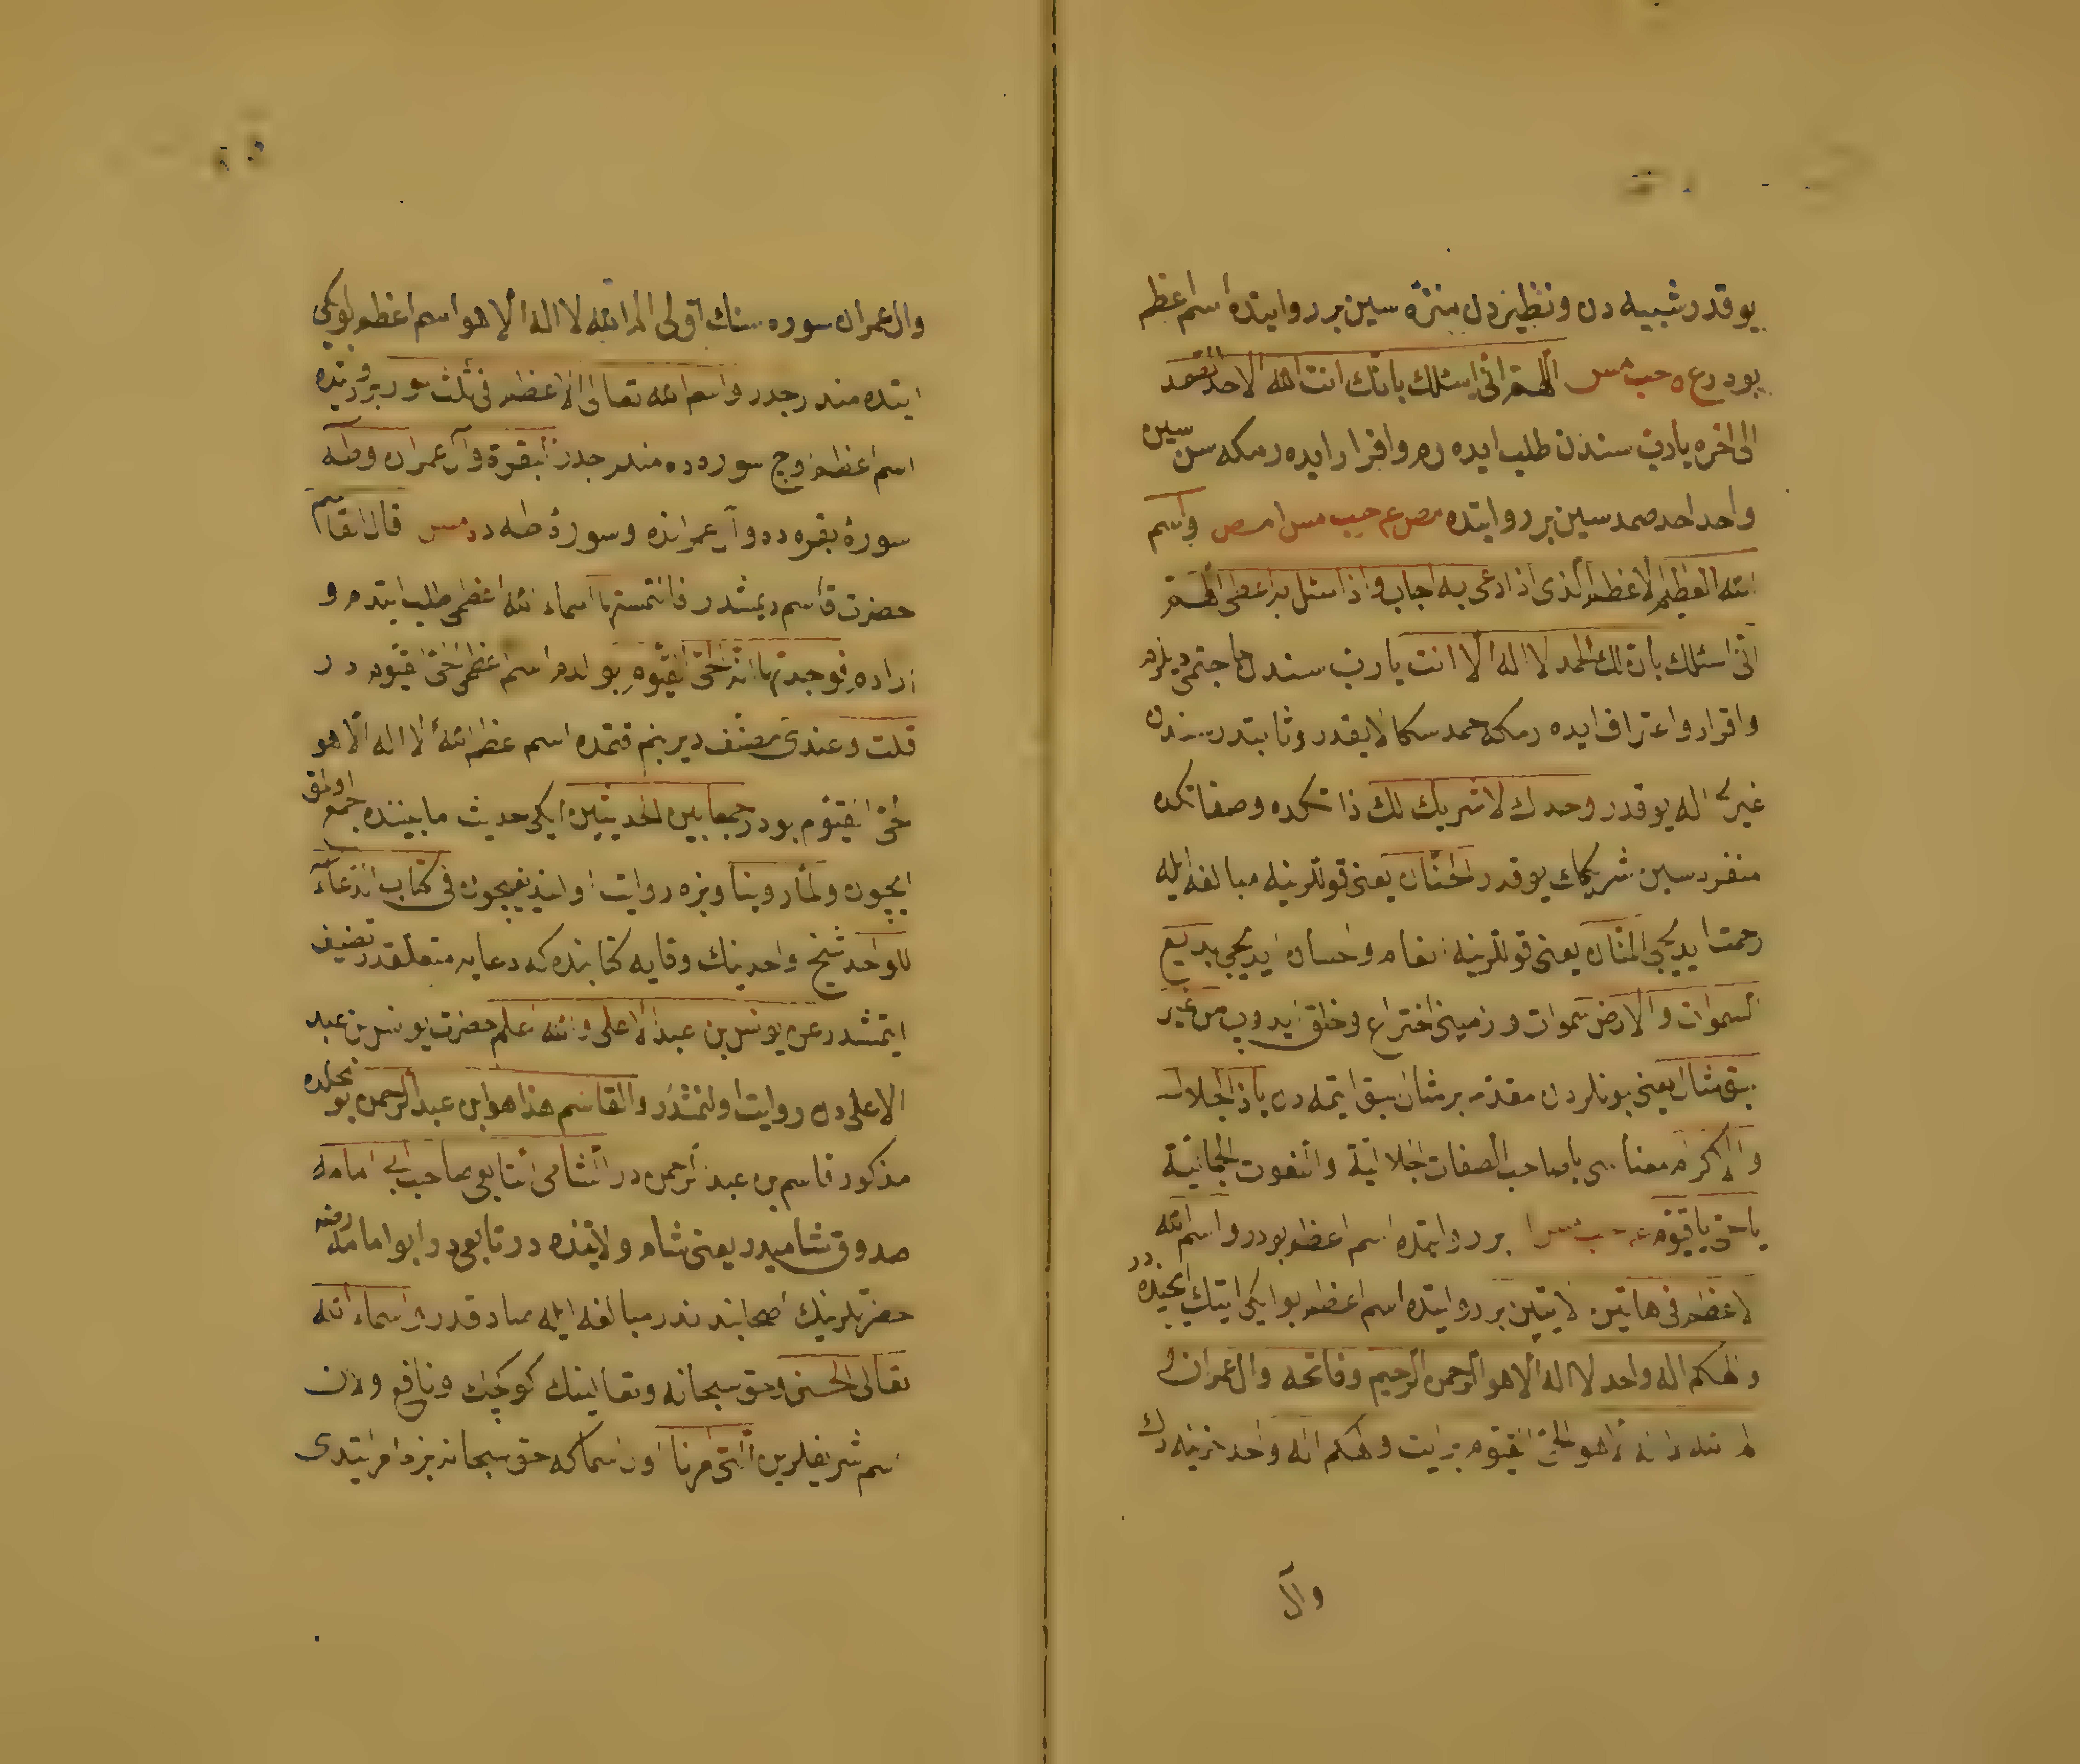 يوقدر شبيه دن ونظيردن منزه سين بر روايتده اسم اعظم
بودر ع ه حب مس اللهم انى اسئلك بانك انت الله الاحد الصمد
الى اخره يا رب سندن طلب ايده رم واقرار ايده رمكه سن سين
واحد احد صمد سين بر روايتده مص عم حب مس ا مص واسم
الله العظيم الاعظم الذى اذا دعى به اجاب واذا سئل به اعطى اللهم
انى اسئلك بان لك الحمد لا اله الا انت يا رب سندن حاجتمى ديلرم
واقرار واعتراف ايده رمكه حمد سكا لايقدر وثابتدر سندن
غيرى اله يوقدر وحدك لا شريك لك ذاتكده وصفاتكده
منفرد سين شريكك يوقدر الحنان يعنى قوللرينه مبالغه ايله
رحمت ايديجى المنان يعنى قوللرينه انعام واحسان ايديجى بديع
السموات والارض سموات وزمينى اختراع وخلق ايدوب من غير
سبق مثال يعنى بونلردن مقدم بر مثال سبق ايتمه دن يا ذا الجلال
والاكرام معناسى يا صاحب الصفات الجلالية والنعوت الجمالية
يا حى يا قيوم عه حب مس ا بر روايتده اسم اعظم بودر واسم الله
الاعظم فى هاتين الايتين بر روايتده اسم اعظم بو ايكى ايتك ايچنده در
والهكم اله واحد لا اله الا هو الرحمن الرحيم وفاتحه وال عمران
الم الله لا اله الا هو الحى القيوم بر ايت والهكم اله واحد
وال
وال عمران سوره سنك اولى الم الله لا اله الا هو اسم اعظم بو ايكى
ايتده مندرجدر واسم الله تعالى الاعظم فى ثلث سور بر روايتده
اسم اعظم اوچ سوروده مندرجدر البقرة وآل عمران وطه
سورۀ بقره ده وآل عمرانده وسورۀ طه ده در مس قال القاسم
حضرت قاسم ديمشدر فالتمستها اسماء الله اعظمى طلب ايتدم و
ارادم فوجدتها انه الحى القيوم بولدم اسم اعظمى الحى القيوم در
قلت وعندى مصنف دير بنم قتمده اسم اعظم الله لا اله الا هو
الحى القيوم بودر جمعا بين الحديثين ايكى حديث مابيننده جمع اولمق
ايچون ولما روينا وبزه روايت اولنديغيچون فى كتاب الدعاء
للواحد شيخ واحدينك وقايه كتابنده كه دعايه متعلقدر تصنيف
ايتمشدر عن يونس بن عبد الاعلى والله اعلم حضرت يونس بن عبد
الاعلى دن روايت اولنمشدر والقاسم هذا هو ابن عبد الرحمن بو محلده
مذكور قاسم بن عبد الرحمن در الشامى التابعى صاحب ابى امامه
صدوق شاميدر يعنى شام ولايتنده در تابعى در وابو امامه رضه
حضرتلرينك اصحابندندر مبالغه ايله صادقدر واسماء الله
تعالى الحسنى وحق سبحانه وتعالينك كوكچك ونافع اولان
اسم شريفلرين التى امرنا اول اسما كه حق سبحانه بزه امر ايتدى